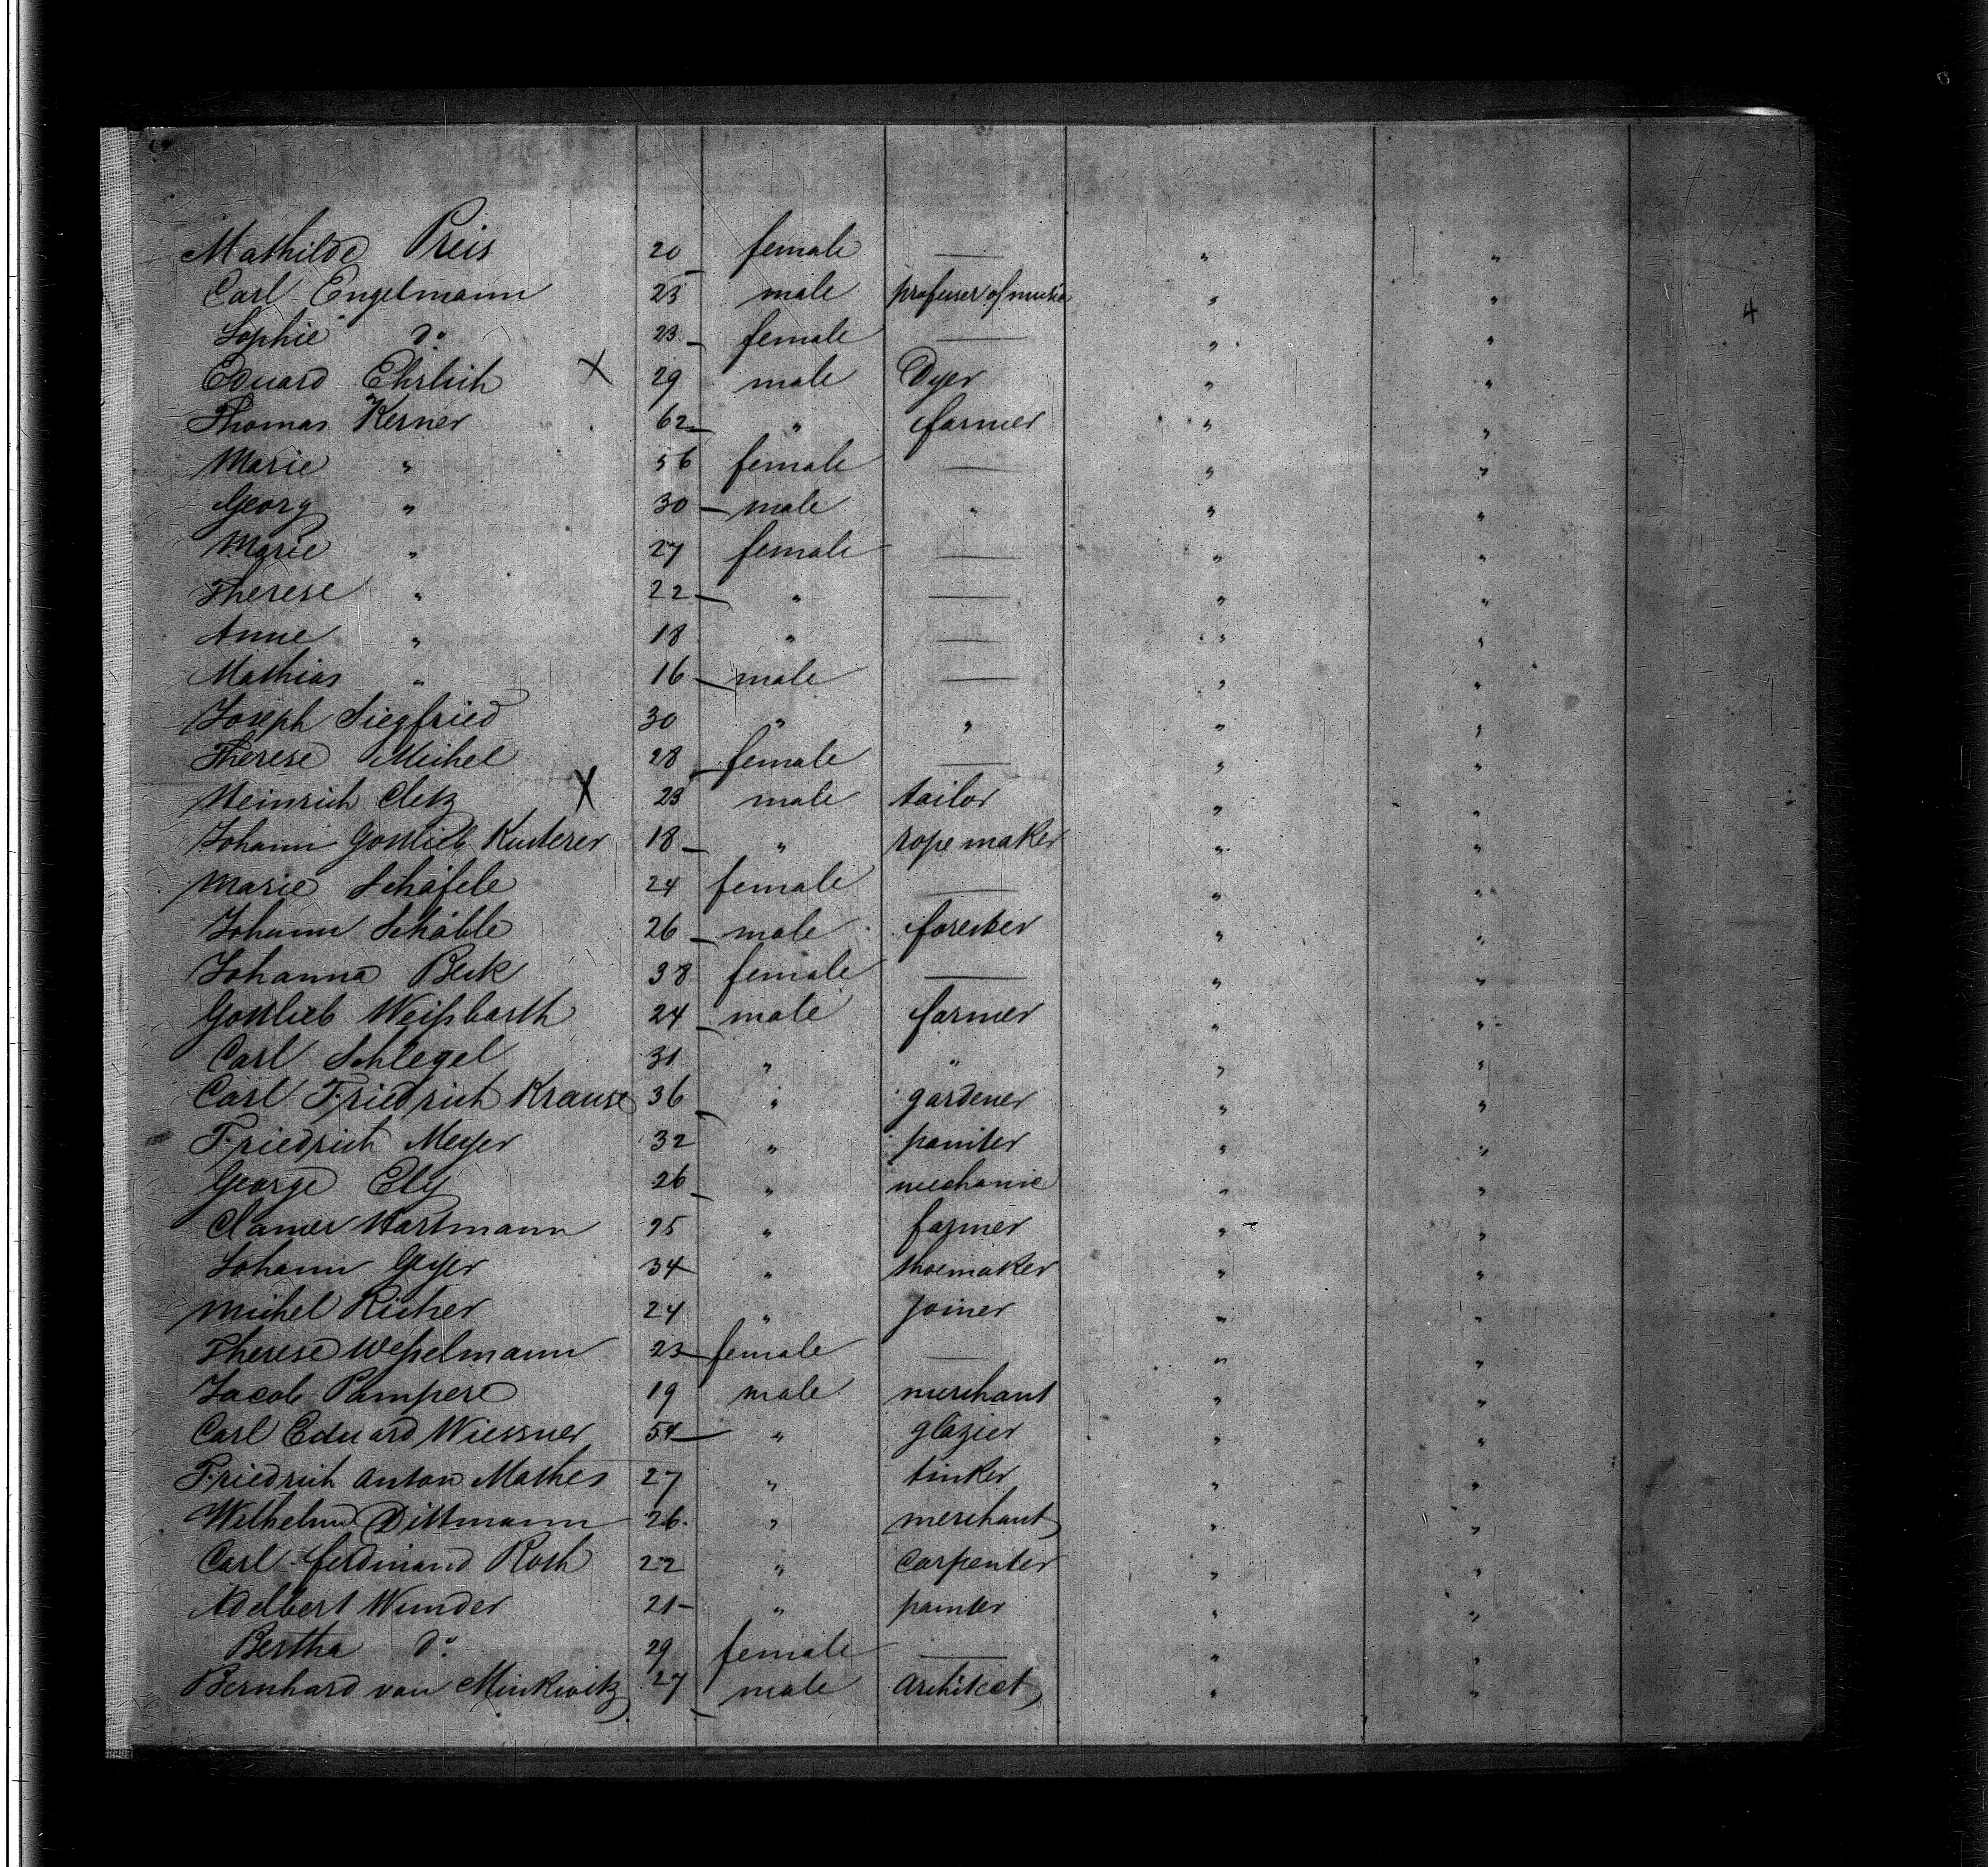 Mathilde Preis 20 female — " "
Carl Engelmann 25 male professer of music " "
4
Sophie do 23 female — " "
Eduard Ehrlich X 29 male Dyer " "
Thomas Kerner 62 " farmer " "
Marie " 56 female — " "
Georg " 30 male " " "
Marie " 27 female — " "
Therese " 22 " — " "
Anne " 18 " — " "
Mathias " 16 male — " "
Joseph Siegfried 30 " " " "
Therese Michel 28 female — " "
Heinrich Cletz X 23 male tailor " "
Johann Gottlieb Kusterer 18 " rope maker " "
Marie Schäfele 24 female — " "
Johann Schäble 26 male forester " "
Johanna Beck 38 female — " "
Gottlieb Weißbarth 24 male farmer " "
Carl Schlegel 31 " " " "
Carl Friedrich Krause 36 " gardener " "
Friedrich Meyer 32 " painter " "
George Ely 26 " mechanic " "
Clamer Hartmann 25 " farmer " "
Johann Geyer 34 " shoemaker " "
Michel Richer 24 " joiner " "
Therese Weßelmann 23 female — " "
Jacob Pampere 19 male merchant " "
Carl Eduard Wiessner 54 " glazier " "
Friedrich Anton Mathes 27 " tinker " "
Wilhelm Dittmann 26 " merchant " "
Carl Ferdinand Roth 22 " carpenter " "
Adelbert Wunder 21 " painter " "
Bertha do 29 female — " "
Bernhard von Minkwitz 27 male Architect " "